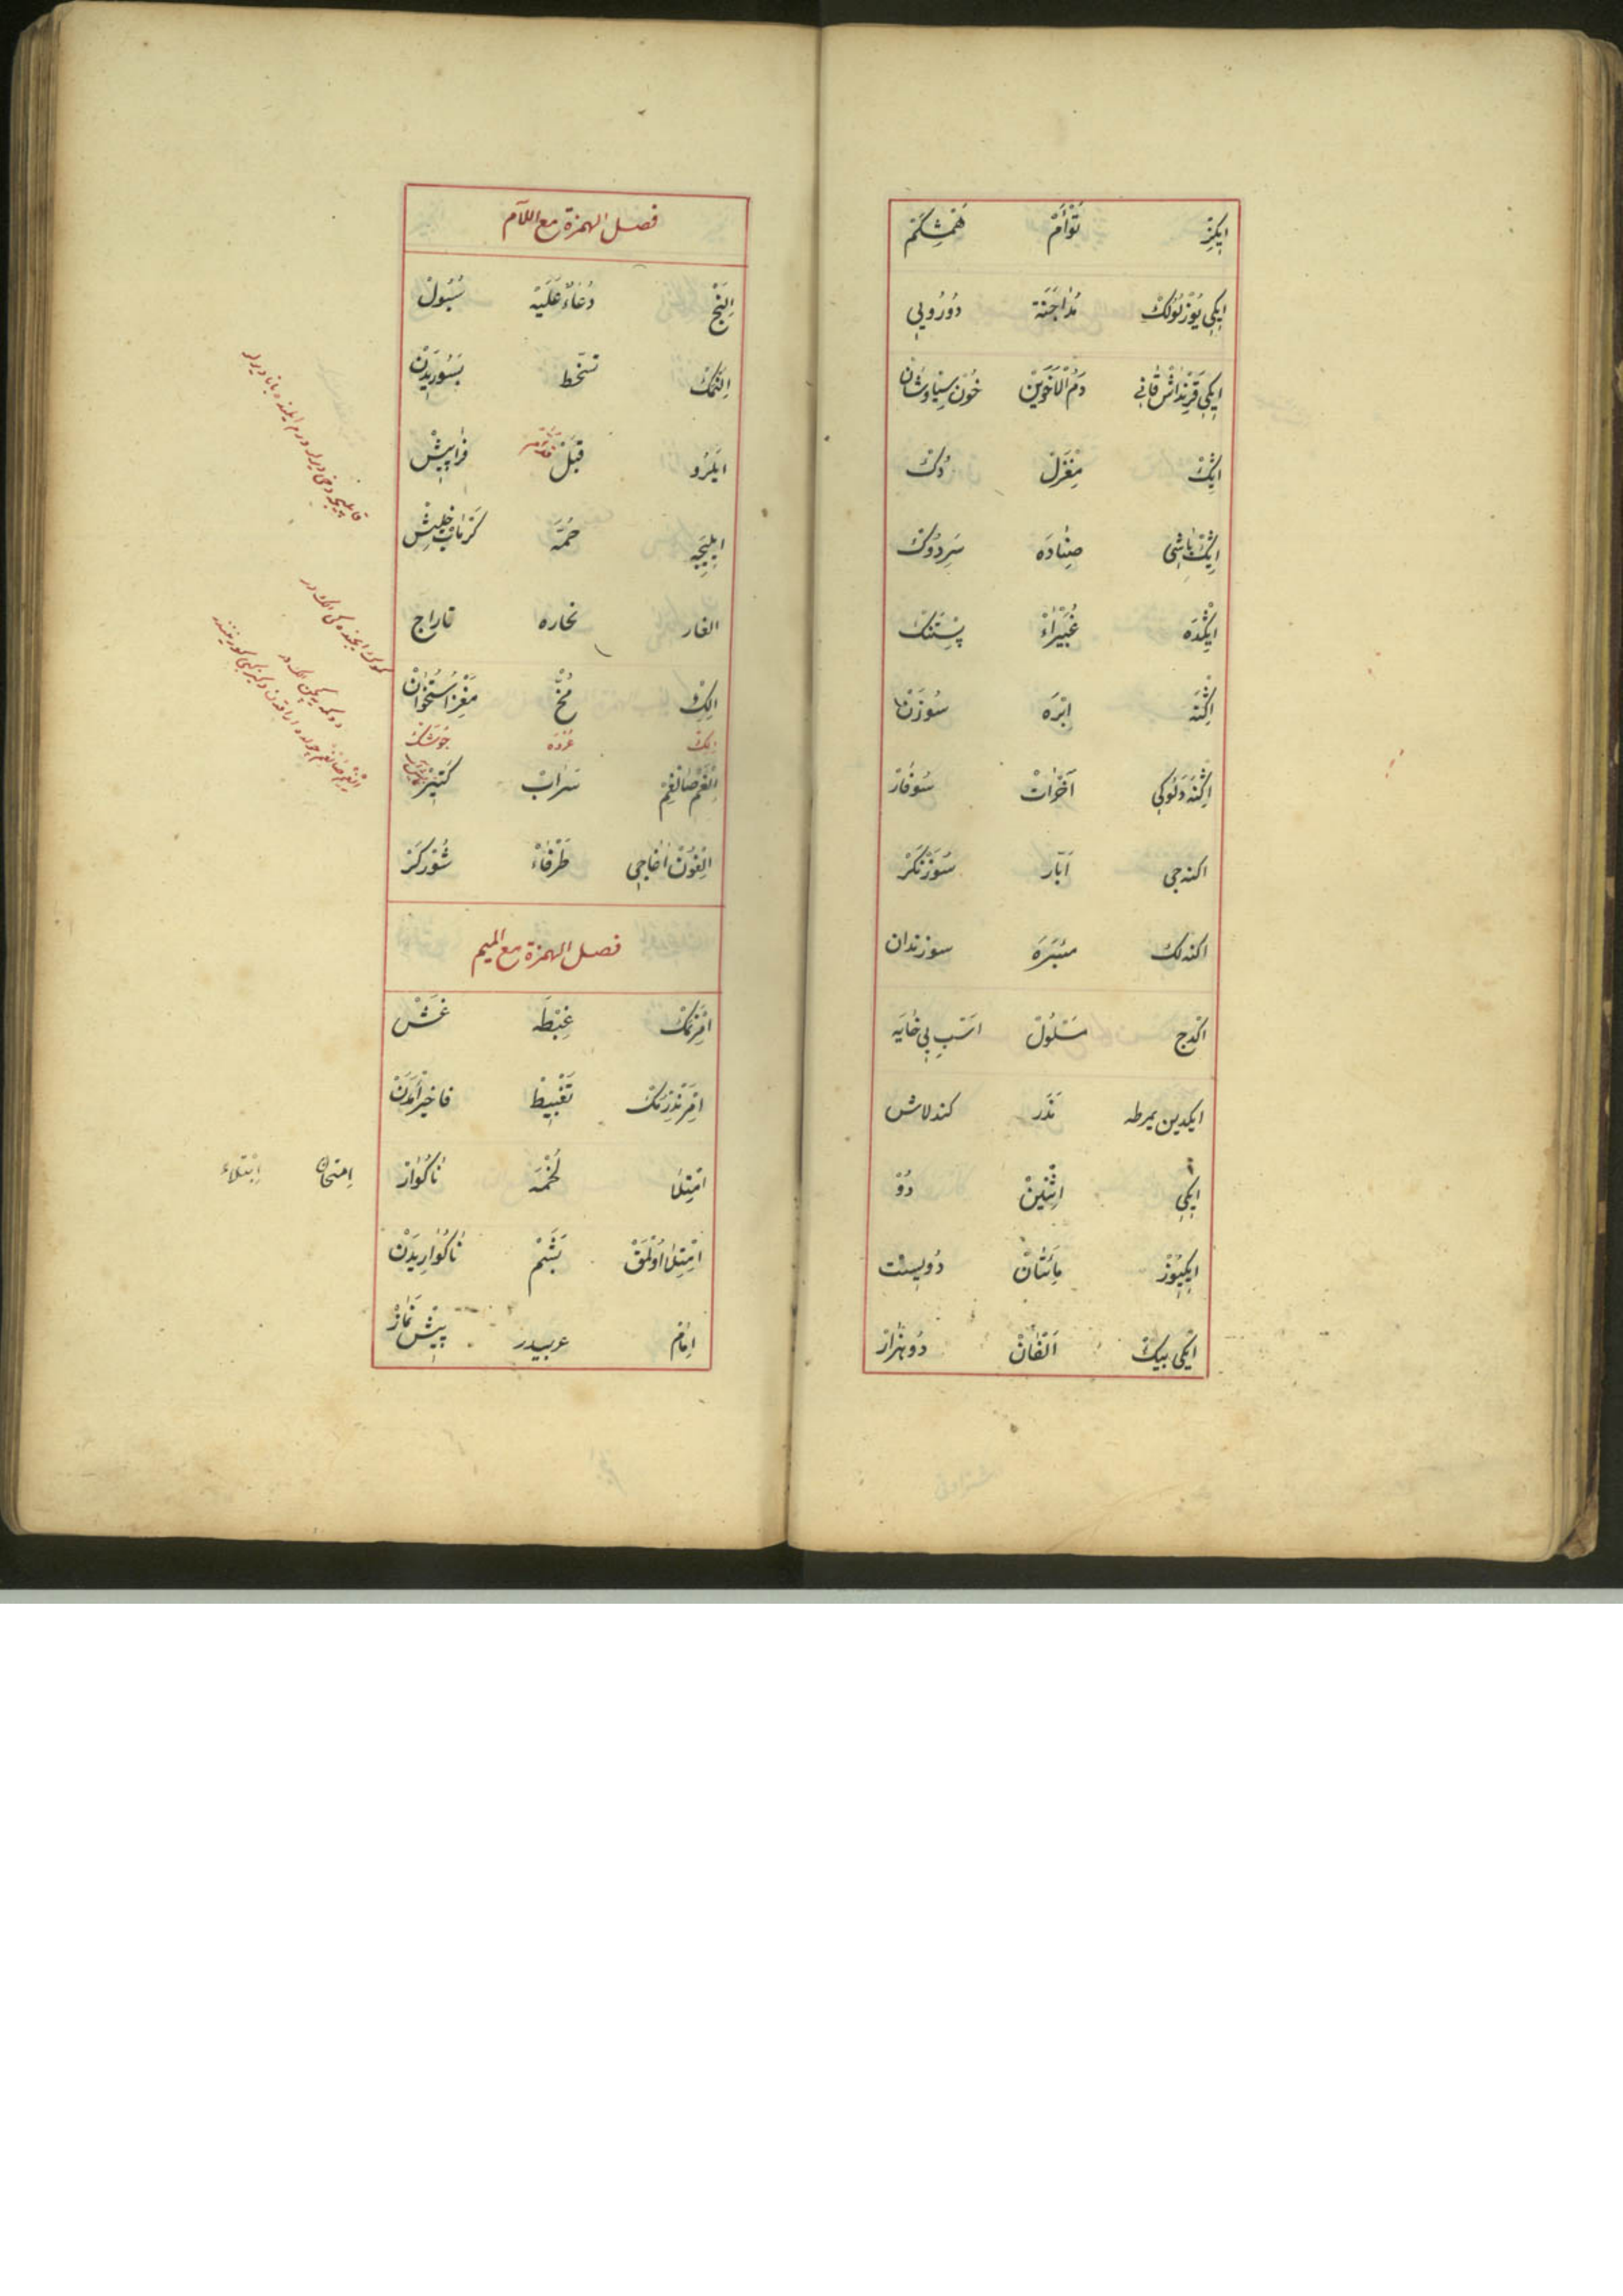 اِیکِزْ تَوْأَمْ هَمْشِکَمْ
اِیکِی یُوزْلُولُكْ مُدَاجَنَة دُورُویِی
اِیکِی قَرِنْدَاشْ قَانِی دَمُ الْاَخَوَیْنْ خُونِ سِیَاوُشَانْ
اِیكْ مِغْزَلْ دُكْ
اِیكْ بَاشِی صِنَادَه سَرِدُوكْ
اِیکْدَه غُبَیْرَاءْ پِسْتَنْك
اِکْنَه اِبْرَه سُوزَنْ
اِکْنَه دَلُوکِی آخْرَاتْ سُوفَارْ
اکنه جی اَبَّارْ سُوزَنْکَرْ
اکنه لك مِئْبَرَه سوزندان
اکدج مَسْلُولْ اَسْبِ بِی خَایَه
ایکدین یمرطه مَذَر کندلاش
اِیکِی اِثْنَیْنْ دُوْ
اِیکِیُوزْ مِائَتَانْ دُوِیسْت
اِیکی بیك اَلْفَانْ دُوهَزَارْ
فصل الهمزة مع اللام
اِلَنْج دُعَاءٌ عَلَیْه سُبُولْ
اِلَنْمَكْ تسخّط بَسُورِیدَنْ
ایلَرُو قبَلْ فَرَاپِیشْ
اِیلِیجَه حُمَّه
الغار نحاره تاراج
اِلِكْ مُخّ مَغْزِ اُسْتُخْوَانْ
الك عُرْوَه جُوشَكْ
اِلْغِمْ صَالْغِمْ سَرَابْ کَتِیرْ
اِلْغُونْ اَغَاجِی طَرْفَاءْ شُورْکَزْ
فصل الهمزة مع المیم
اِمْرَنْمَكْ غِبْطَه غَشْ
اِمْرَنْدِرْمَكْ تَغْبِیطْ
اِمْتِلَا تُخْمَه نَاکُوَارْ
اِمْتِحَانْ اِبْتِلَاءْ
اِمْتِلَا اَوْلْمَقْ بَشَمْ نَاکُوَارِیدَنْ
اِمَامْ عربیدر پِیشْ نَمَازْ